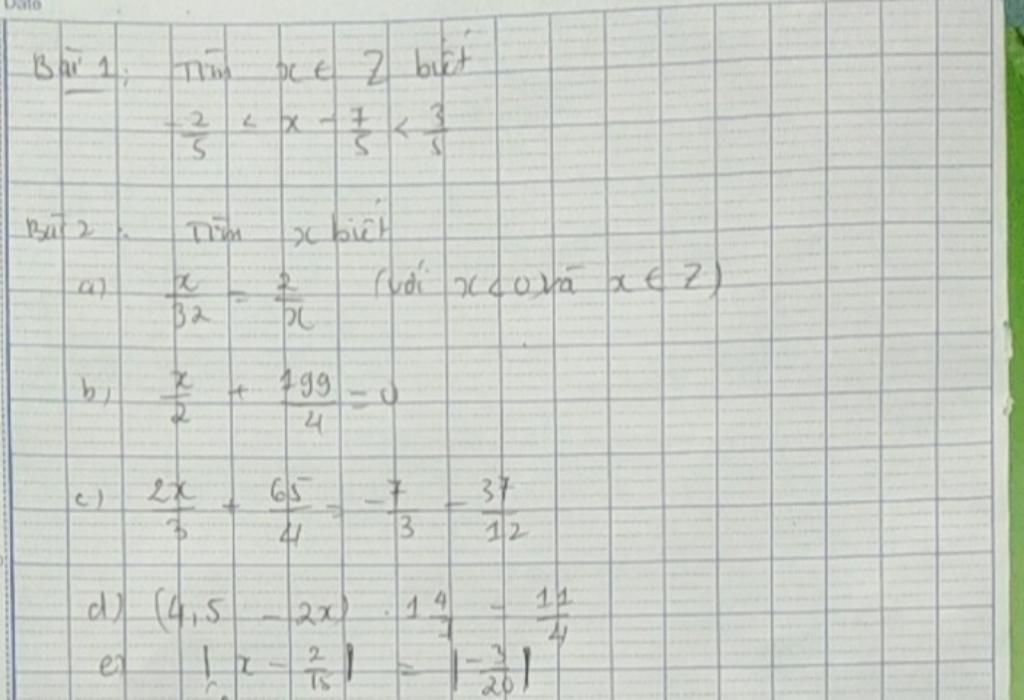 Date
Bài 1: Tìm x ∈ Z biết
-2/5 < x - 7/5 < 3/5
Bài 2: Tìm x biết
a) x/32 = 2/x (với x < 0 và x ∈ Z)
b) x/2 + 199/4 = 0
c) 2x/3 + 65/4 = -7/3 - 37/12
d) (4,5 - 2x) . 1 4/7 = 11/4
e) |x - 2/15| = |-3/20|